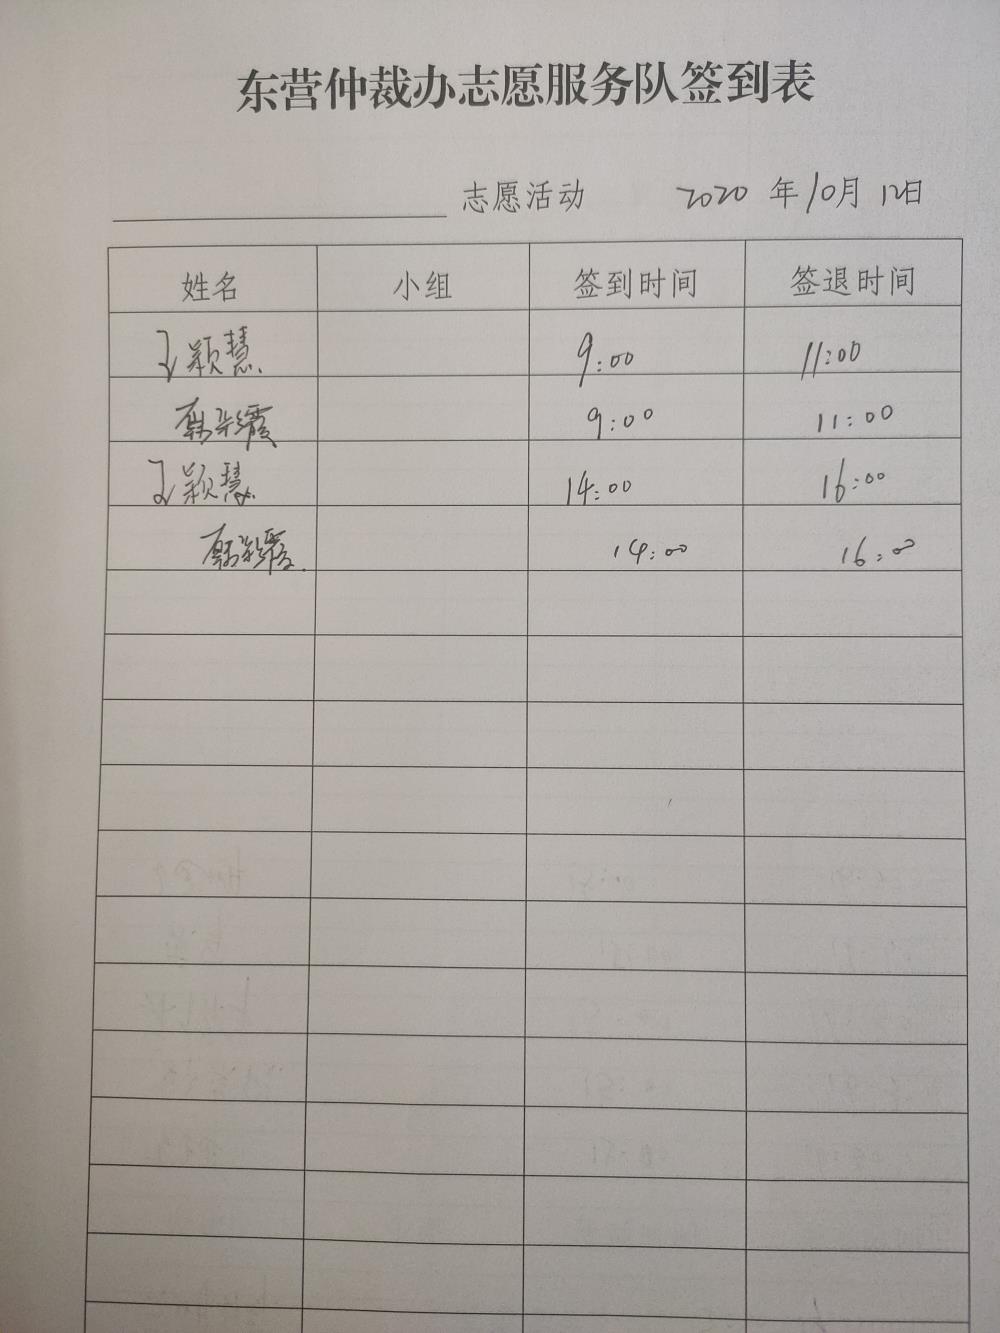 东营仲裁办志愿服务队签到表
志愿活动 2020 年 10月 12日
姓名 小组 签到时间 签退时间
王颖慧 9:00 11:00
9:00 11:00
王颖慧 14:00 16:00
14:00 16:00